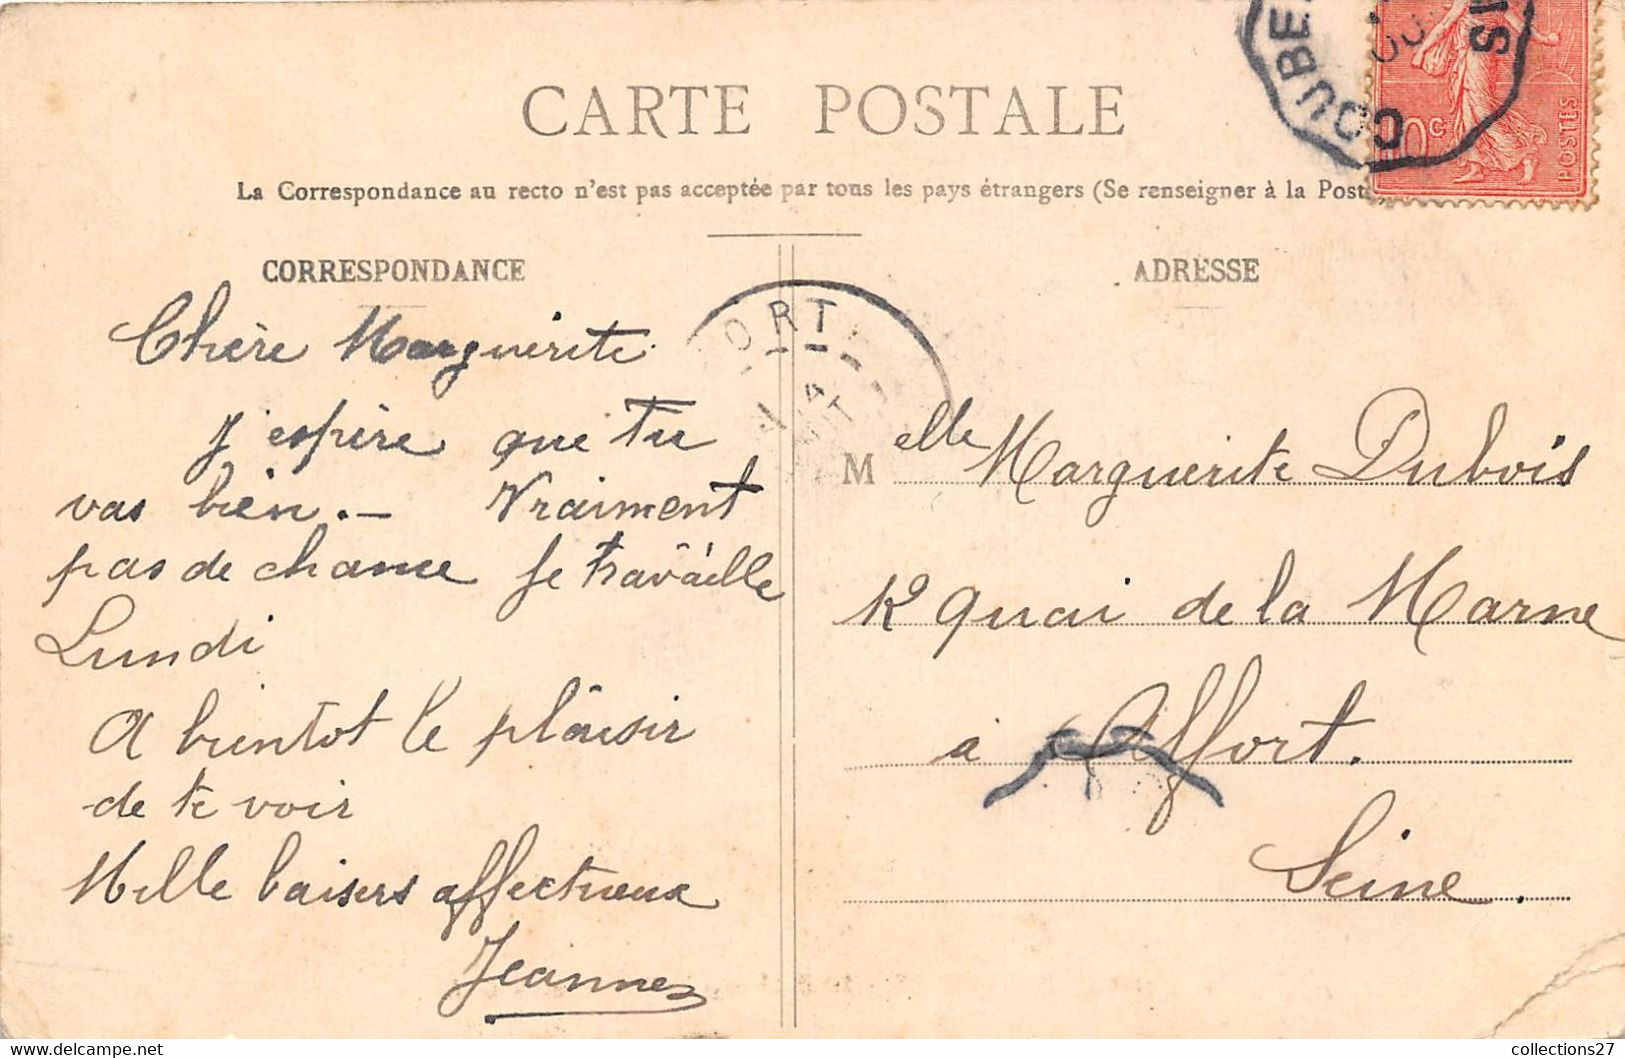 CARTE POSTALE
La Correspondance au recto n'est pas acceptée par tous les pays étrangers (Se renseigner à la Post
CORRESPONDANCE
Chère Marguerite
J'espère que tu
vas bien. — Vraiment
pas de chance je travaille
Lundi
A bientot le plaisir
de te voir
Mille baisers affectueux
Jeanne
ADRESSE
Melle Marguerite Dubois
Quai de la Marne
à Alfort.
Seine.
10c
POSTES
COUBE
IS
ORT
collections27